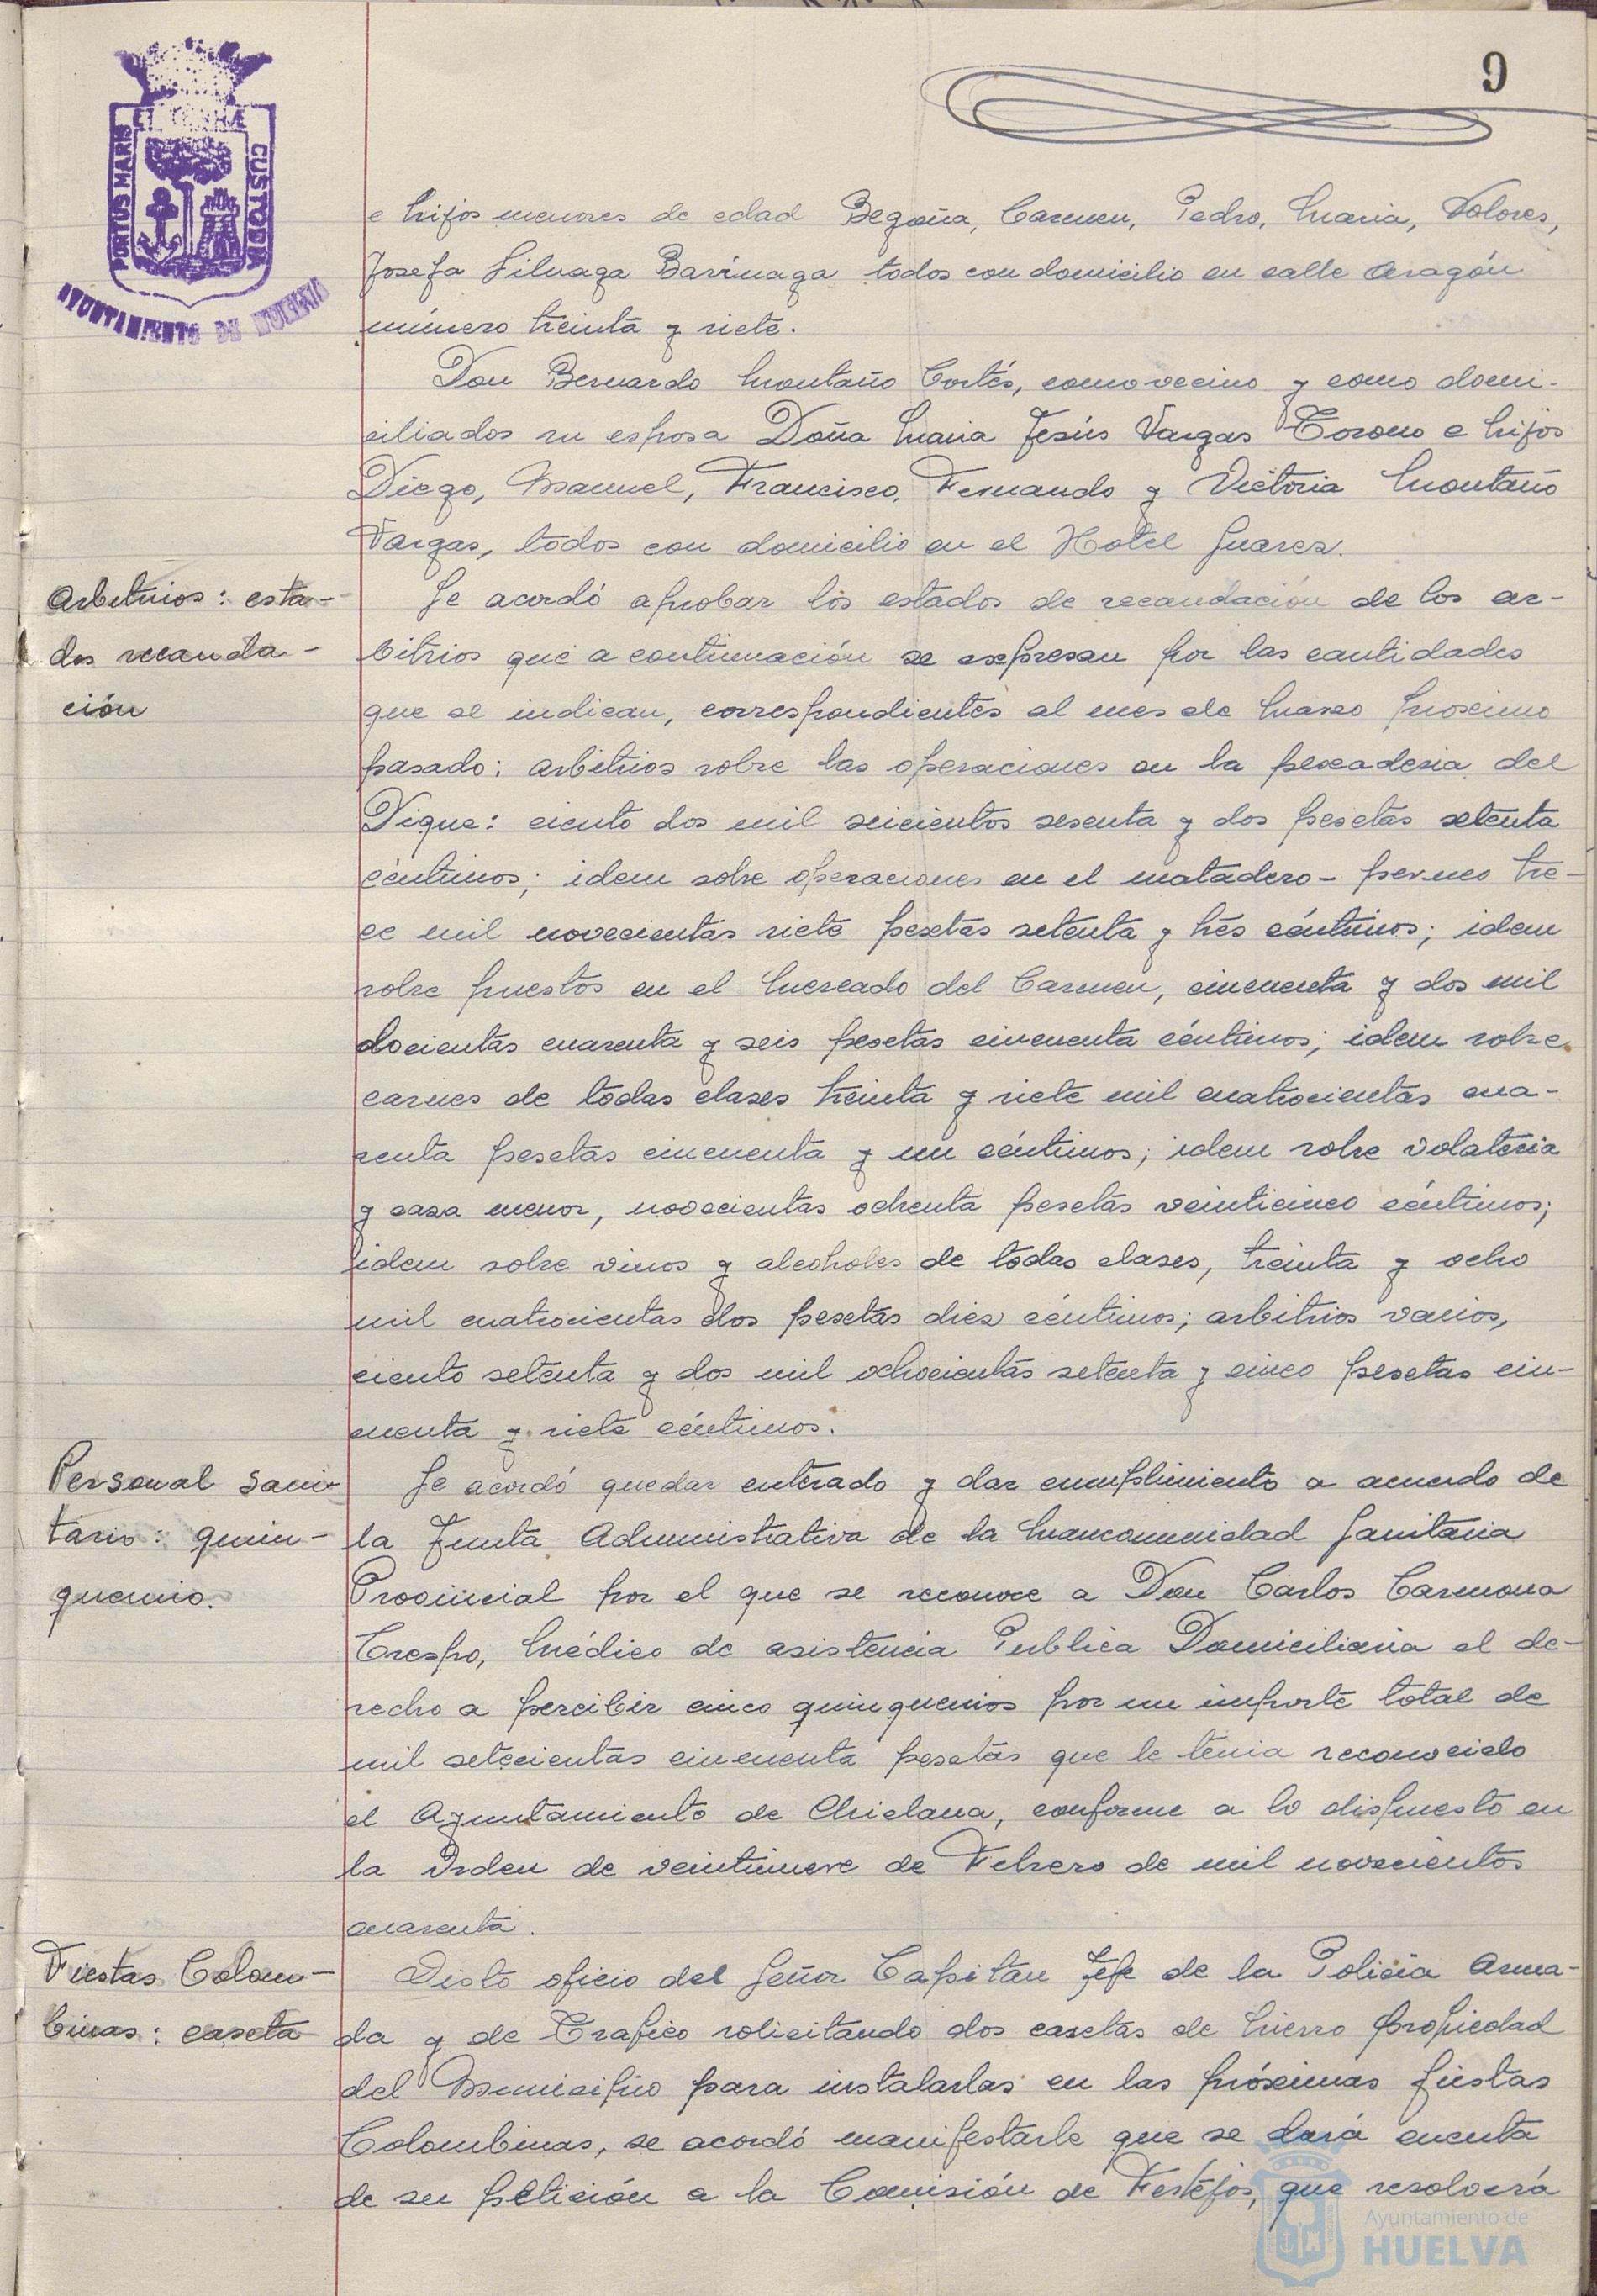 9
PORTUS MARIS
ET TERRÆ
CUSTODIA
AYUNTAMIENTO DE HUELVA
e hijos menores de edad Begoña, Carmen, Pedro, Maria, Dolores,
Josefa Liluaga Barinaga todos con domicilio en calle Aragón
número treinta y siete.
Don Bernardo Montaño Cortés, como vecino y como domi-
ciliados su esposa Doña Maria Jesús Vargas e hijos
Diego, Manuel, Francisco, Fernando y Victoria Montaño
Vargas, todos con domicilio en el Hotel Suarez.
Arbitrios: esta-
dos recauda-
ción
Se acordó aprobar los estados de recaudación de los ar-
bitrios que a continuación se expresan por las cantidades
que se indican, correspondientes al mes de Marzo proximo
pasado: arbitrios sobre las operaciones en la pescaderia del
Dique: ciento dos mil seicientos sesenta y dos pesetas setenta
céntimos; idem sobre operaciones en el matadero - perneo tre-
ce mil novecientas siete pesetas setenta y tres céntimos; idem
sobre puestos en el Mercado del Carmen, cincuenta y dos mil
docientas cuarenta y seis pesetas cincuenta céntimos; idem sobre
carnes de todas clases treinta y siete mil cuatrocientas cua-
renta pesetas cincuenta y un céntimos; idem sobre volateria
y caza menor, novecientas ochenta pesetas veinticinco céntimos;
idem sobre vinos y alcoholes de todas clases, treinta y ocho
mil cuatrocientas dos pesetas diez céntimos; arbitrios varios,
ciento setenta y dos mil ochocientas setenta y cinco pesetas cin-
cuenta y siete céntimos.
Personal sani-
tario: quin-
quenio.
Se acordó quedar enterado y dar cumplimiento a acuerdo de
la Junta Administrativa de la Mancomunidad Sanitaria
Provincial por el que se reconoce a Don Carlos Carmona
Crespo, Médico de asistencia Publica Domiciliaria el de-
recho a percibir cinco quinquenios por un importe total de
mil setecientas cincuenta pesetas que le tenia reconocido
el Ayuntamiento de Chiclana, conforme a lo dispuesto en
la Orden de veintinueve de Febrero de mil novecientos
cuarenta.
Fiestas Colom-
binas: caseta
Visto oficio del Señor Capitan Jefe de la Policia Arma-
da y de Trafico solicitando dos casetas de hierro propiedad
del Municipio para instalarlas en las próximas fiestas
Colombinas, se acordó manifestarle que se dará cuenta
de su petición a la Comisión de Festejos, que resolverá
Ayuntamiento de
HUELVA